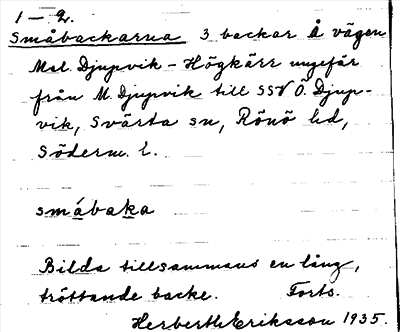 1 – 2.
Småbackarna 3 backar å vägen
Mel. Djupvik – Högkärr ungefär
från M. Djupvik till SSV Ö. Djup-
vik, Svärta sn, Rönö hd,
Söderm. l.
småbaka
Bilda tillsammans en lång,
tröttande backe. Forts.
Herbert Eriksson 1935.